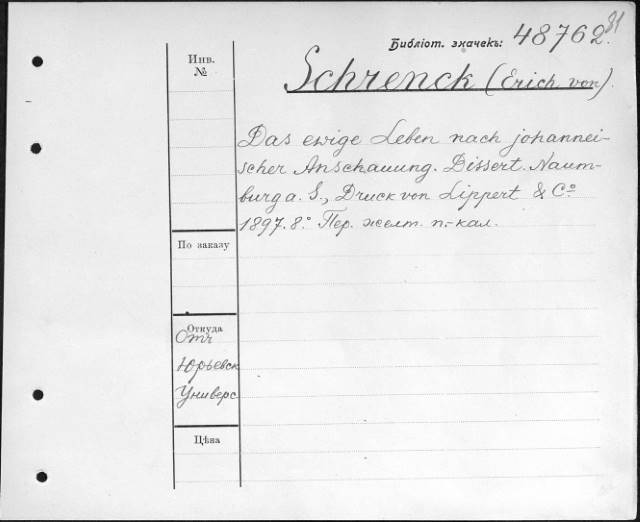 Библіот. значекъ: 48762 31
Инв.
№
Schrenck (Erich von).
Das ewige Leben nach johannei-
scher Anschauung. Dissert. Naum-
burg a. S., Druck von Lippert & Co.
1897. 8.° Пер. желт. п.-кал.
По заказу
Откуда
От
Юрьевск
Универс
Цѣна